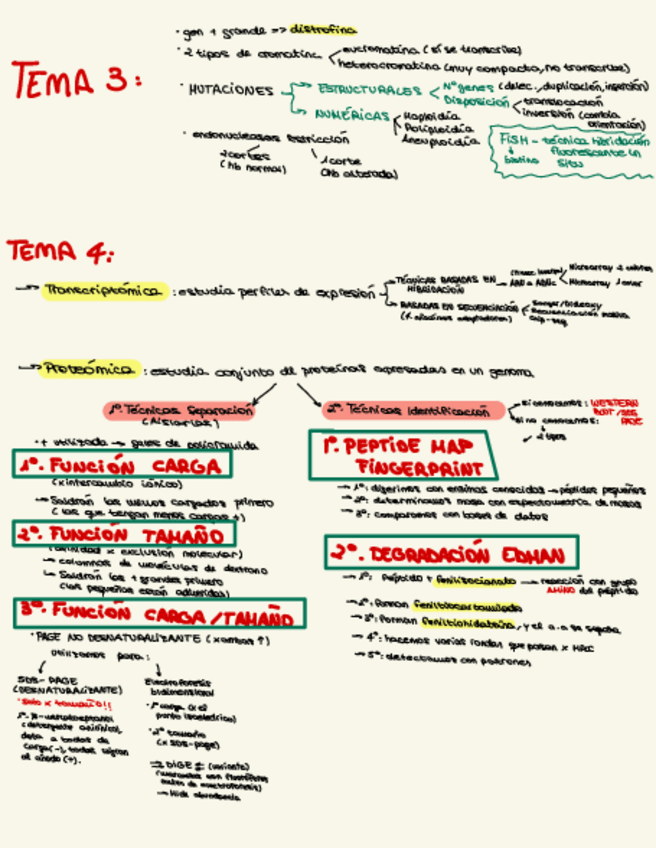 TEMA 3:
· gen + grande => distrofina
· 2 tipos de cromatina
eucromatina (sí se transcribe)
heterocromatina (muy compacta, no transcribe)
· MUTACIONES
ESTRUCTURALES
Nº genes (delec., duplicación, inserción)
Disposición
translocación
inversión (cambia orientación)
NUMÉRICAS
Haploidía
Poliploidía
Aneuploidía
· endonucleasas restricción
2 cortes
(Hb normal)
1 corte
(Hb alterada)
FISH - técnica hibridación
fluorescente in
situ
biotina
TEMA 4:
Transcriptómica : estudia perfiles de expresión
TÉCNICAS BASADAS EN
HIBRIDACIÓN
Microarray 2 colores
Microarray 1 color
BASADAS EN SECUENCIACIÓN
Secuenciación masiva
Proteómica : estudia conjunto de proteínas expresadas en un genoma
1º. Técnicas Separación
(Aislarlas)
2º. Técnicas Identificación
si conocemos: WESTERN
si no conocemos:
2 tipos
· + utilizada → geles de poliacrilamida
1º. FUNCIÓN CARGA
(x intercambio iónico)
→ Saldrán las menos cargadas primero
(las que tengan menos cargas +)
2º. FUNCIÓN TAMAÑO
(afinidad x exclusión molecular)
→ columnas de moléculas de dextrano
→ Saldrán las + grandes primero
(las pequeñas están adheridas)
3º. FUNCIÓN CARGA/TAMAÑO
· PAGE NO DESNATURALIZANTE (x ambas ↑)
utilizamos para:
SDS-PAGE
(DESNATURALIZANTE)
· solo x tamaño!!
1º. β-mercaptoetanol
(detergente aniónico,
dota a todas de
carga (-), todas migran
al ánodo (+).
Electroforesis
bidimensional
· 1º carga (x el
punto isoeléctrico)
· 2º tamaño
(x SDS-page)
→ DIGE = (variante)
(marcadas con fluoróforos
antes de electroforesis)
→ Mide abundancia
1º. PEPTIDE MAP
FINGERPRINT
→ 1º: digerimos con enzimas conocidas → péptidos pequeños
→ 2º: determinamos masa con espectometría de masas
→ 3º: comparamos con bases de datos
2º. DEGRADACIÓN EDMAN
→ 1º: Péptido + fenilisocianato → reacción con grupo
AMINO del péptido
→ 2º: forman
→ 3º: forman feniltiohidantoína, y el a.a se separa
→ 4º: hacemos varias rondas que pasan x HPLC
→ 5º: detectamos con patrones